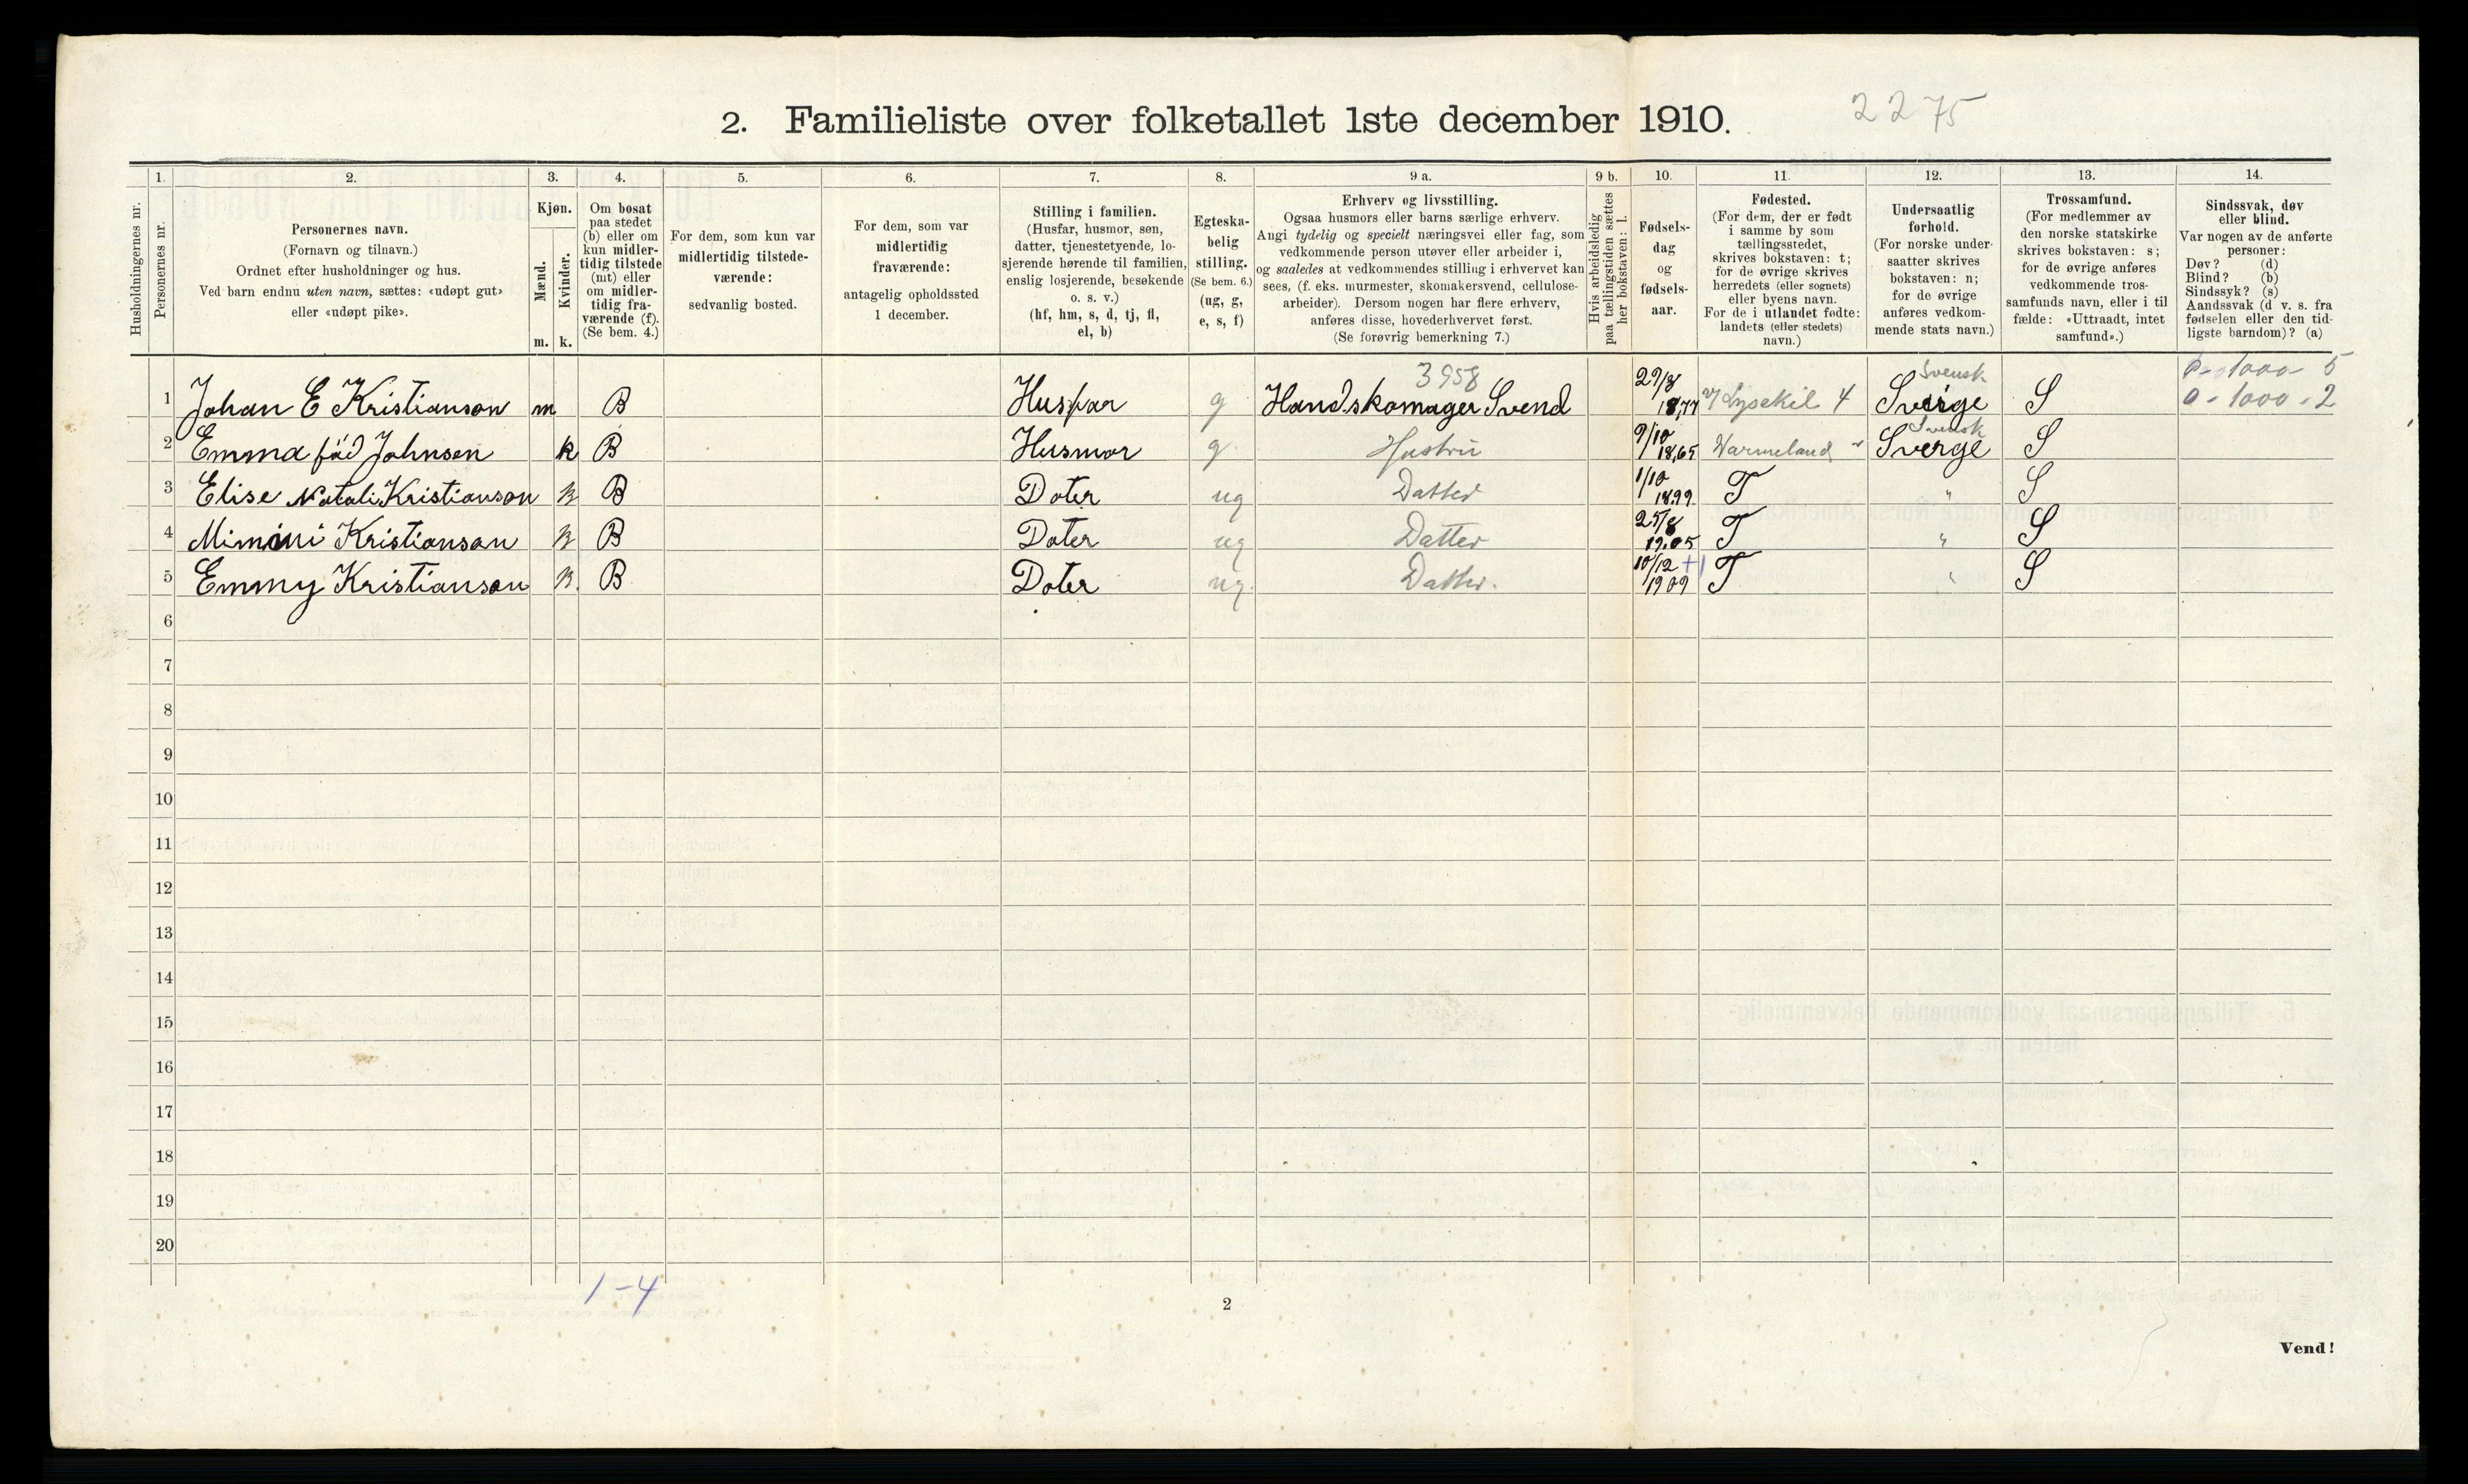 2. Familieliste over folketallet 1ste december 1910.
2275
1. 2. 3. 4. 5. 6. 7. 8. 9 a. 9 b. 10. 11. 12. 13. 14.
Husholdningernes nr.
Personernes nr.
Personernes navn.
(Fornavn og tilnavn.)
Ordnet efter husholdninger og hus.
Ved barn endnu uten navn, sættes: «udøpt gut»
eller «udøpt pike».
Kjøn.
Mænd.
Kvinder.
m. k.
Om bosat
paa stedet
(b) eller om
kun midler-
tidig tilstede
(mt) eller
om midler-
tidig fra-
værende (f).
(Se bem. 4.)
For dem, som kun var
midlertidig tilstede-
værende:
sedvanlig bosted.
For dem, som var
midlertidig
fraværende:
antagelig opholdssted
1 december.
Stilling i familien.
(Husfar, husmor, søn,
datter, tjenestetyende, lo-
sjerende hørende til familien,
enslig losjerende, besøkende
o. s. v.)
(hf, hm, s, d, tj, fl,
el, b)
Egteska-
belig
stilling.
(Se bem. 6.)
(ug, g,
e, s, f)
Erhverv og livsstilling.
Ogsaa husmors eller barns særlige erhverv.
Angi tydelig og specielt næringsvei eller fag, som
vedkommende person utøver eller arbeider i,
og saaledes at vedkommendes stilling i erhvervet kan
sees, (f. eks. murmester, skomakersvend, cellulose-
arbeider). Dersom nogen har flere erhverv,
anføres disse, hovederhvervet først.
(Se forøvrig bemerkning 7.)
Hvis arbeidsledig
paa tællingstiden sættes
her bokstaven: l.
Fødsels-
dag
og
fødsels-
aar.
Fødested.
(For dem, der er født
i samme by som
tællingsstedet,
skrives bokstaven: t;
for de øvrige skrives
herredets (eller sognets)
eller byens navn.
For de i utlandet fødte:
landets (eller stedets)
navn.)
Undersaatlig
forhold.
(For norske under-
saatter skrives
bokstaven: n;
for de øvrige
anføres vedkom-
mende stats navn.)
Trossamfund.
(For medlemmer av
den norske statskirke
skrives bokstaven: s;
for de øvrige anføres
vedkommende tros-
samfunds navn, eller i til
fælde: «Uttraadt, intet
samfund».)
Sindssvak, døv
eller blind.
Var nogen av de anførte
personer:
Døv? (d)
Blind? (b)
Sindssyk? (s)
Aandssvak (d v. s. fra
fødselen eller den tid-
ligste barndom)? (a)
3958 Svensk 0-1000-5
1 Johan E Kristianson m B Husfar g Handskomager Svend 29/8 1877 Lysekil 4 Sverige S 0-1000-2
Svensk
2 Emma föd Johnsen k B Husmor g. Hustru 9/10 1865 Warmeland " Sverge S
3 Elise Natali Kristianson k B Doter ug Datter 1/10 1899 T " S
4 Mimmi Kristianson k B Doter ug Datter 25/8 1905 T " S
5 Emmy Kristianson k. B Doter ug. Datter. 10/12 +1 1909 T " S
6
7
8
9
10
11
12
13
14
15
16
17
18
19
20
1-4
2
Vend!